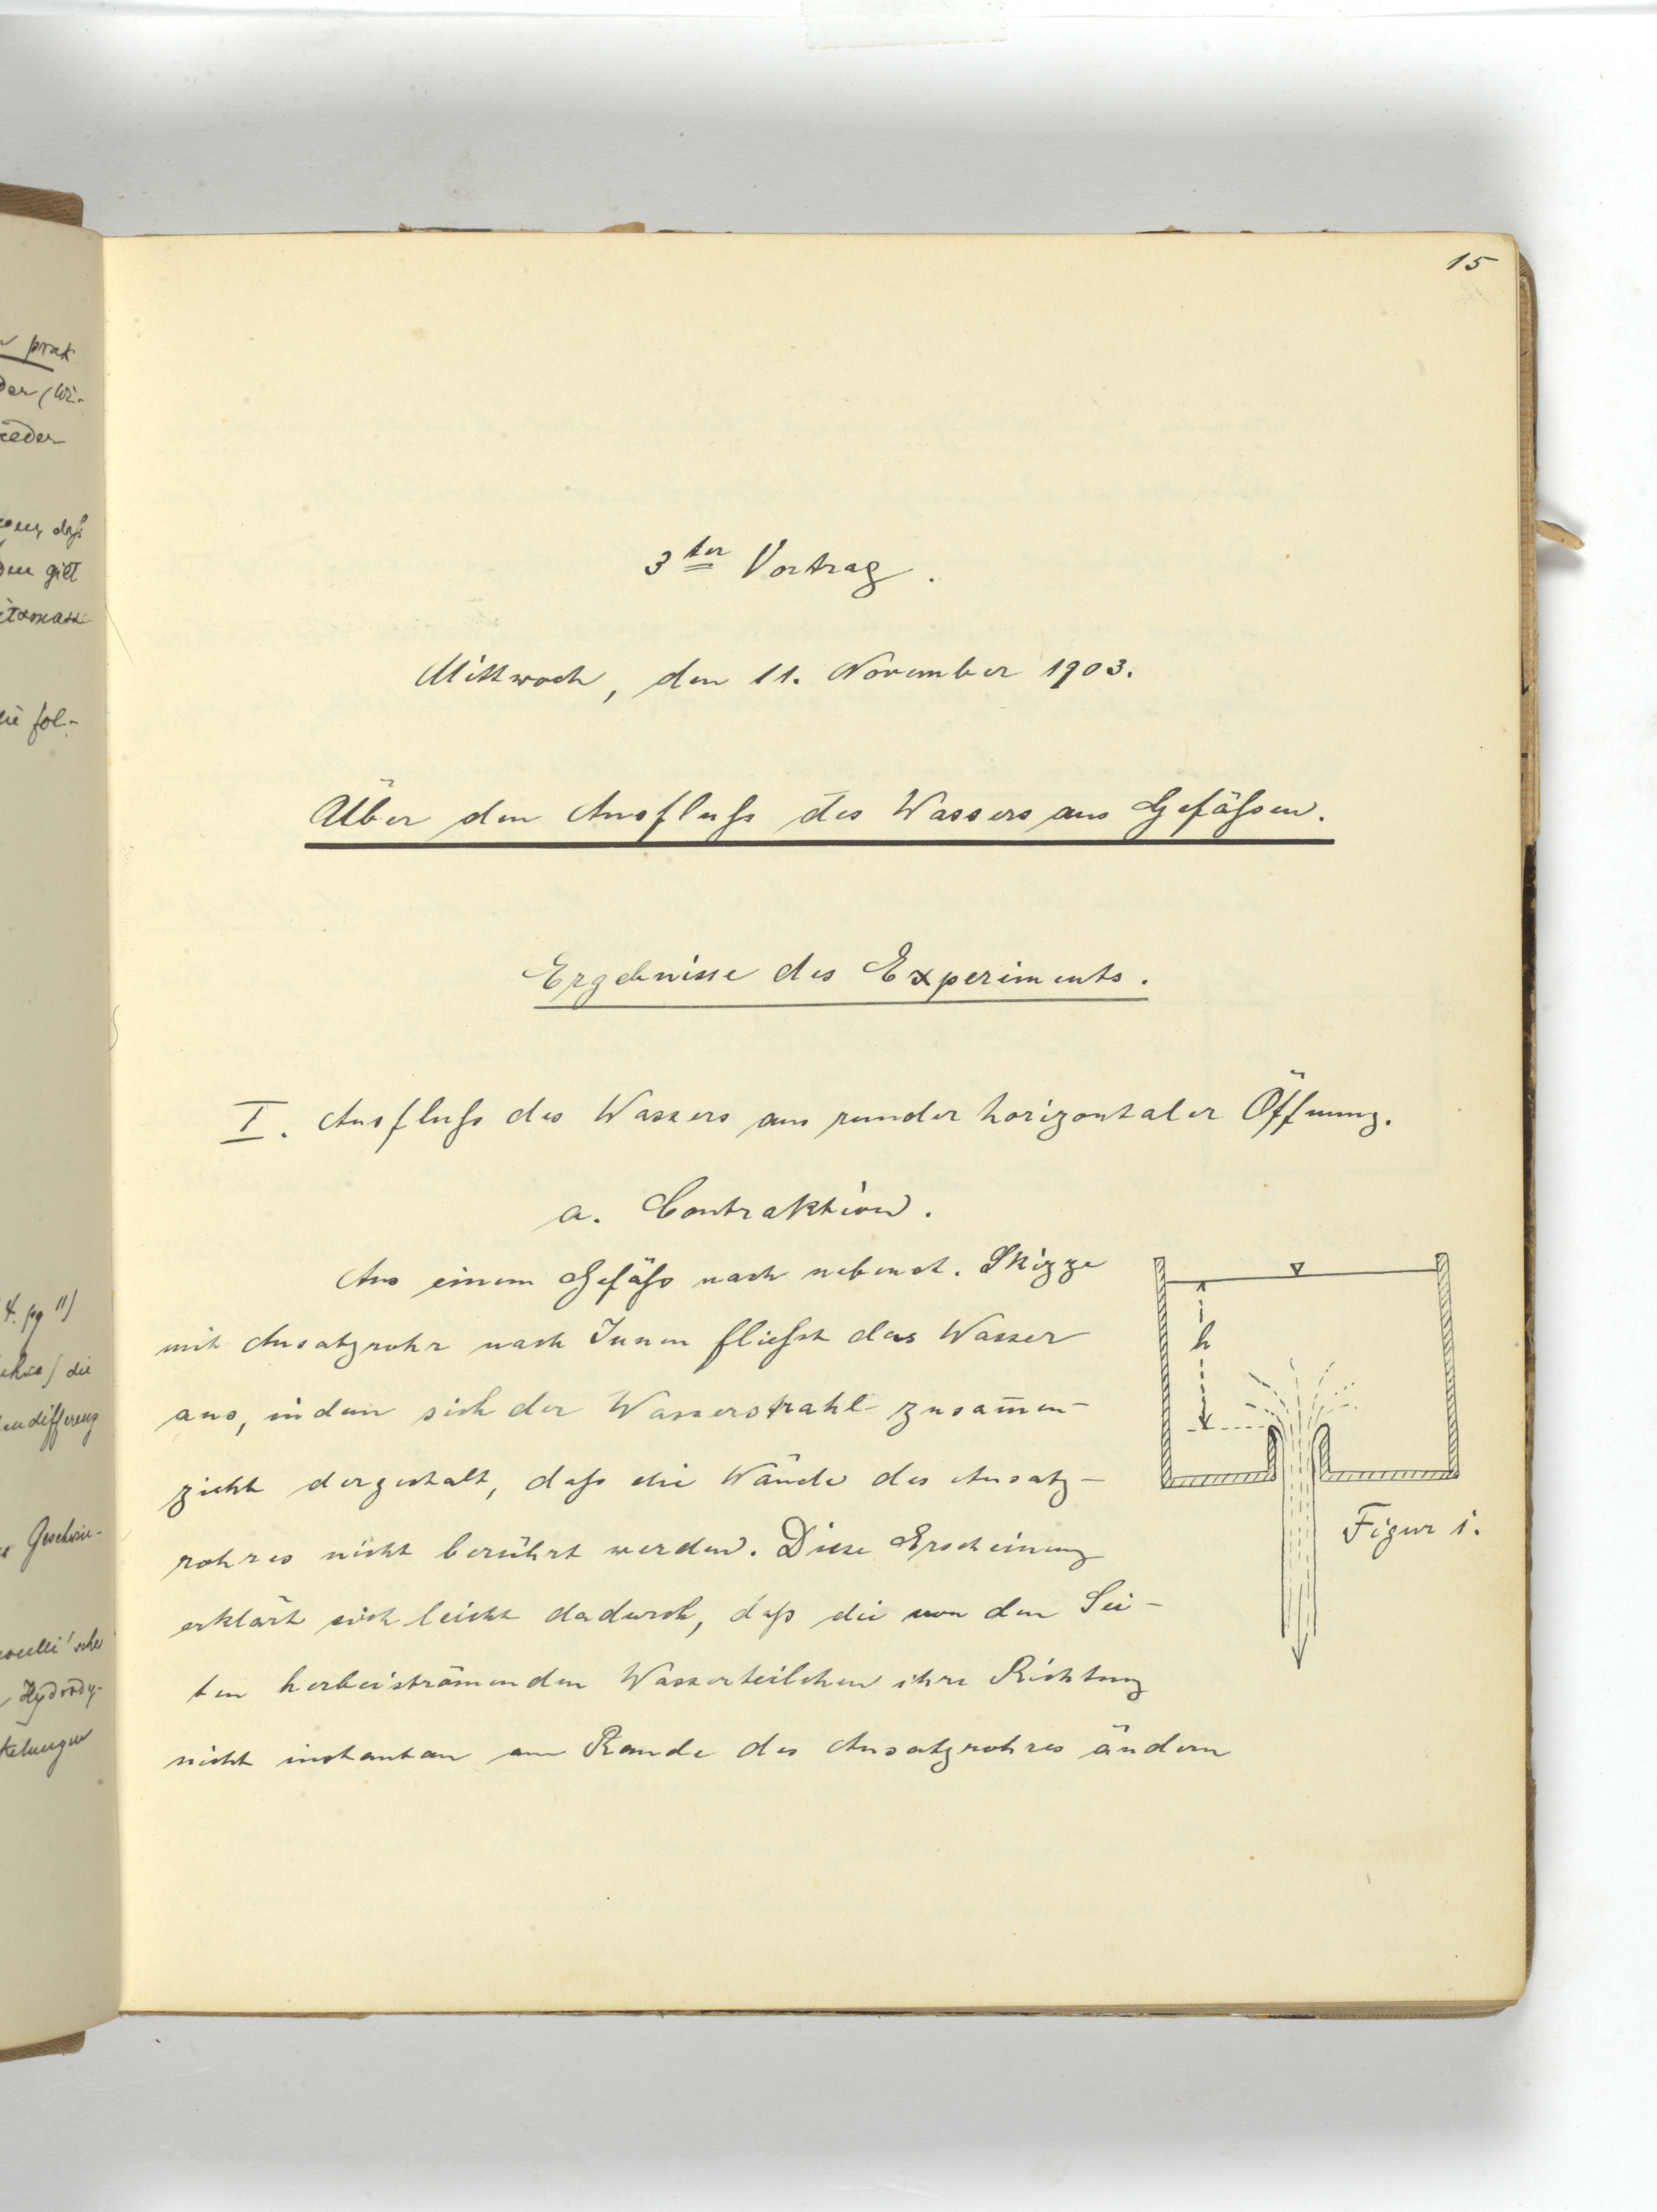 prak
der (Wi-
ieder
daß
den gilt
die fol-
4. pg 11)
die
endifferenz
Geschwin-
Hydrody-
15
3ter Vortrag.
Mittwoch, den 11. November 1903.
Über den Ausfluß des Wassers aus Gefäßen.
Ergebnisse des Experiments.
I. Ausfluß des Wassers aus runder horizontaler Öffnung.
a. Contraktion.
Aus einem Gefäß nach nebenst. Skizze
mit Ansatzrohr nach Innen fließt das Wasser
aus, indem sich der Wasserstrahl zusam̅en-
zieht dergestalt, daß die Wände des Ansatz-
rohres nicht berührt werden. Diese Erscheinung
erklärt sich leicht dadurch, daß die von den Sei-
ten herbeiströmenden Wasserteilchen ihre Richtung
nicht instantan am Rande des Ansatzrohres ändern
h
Figur 1.